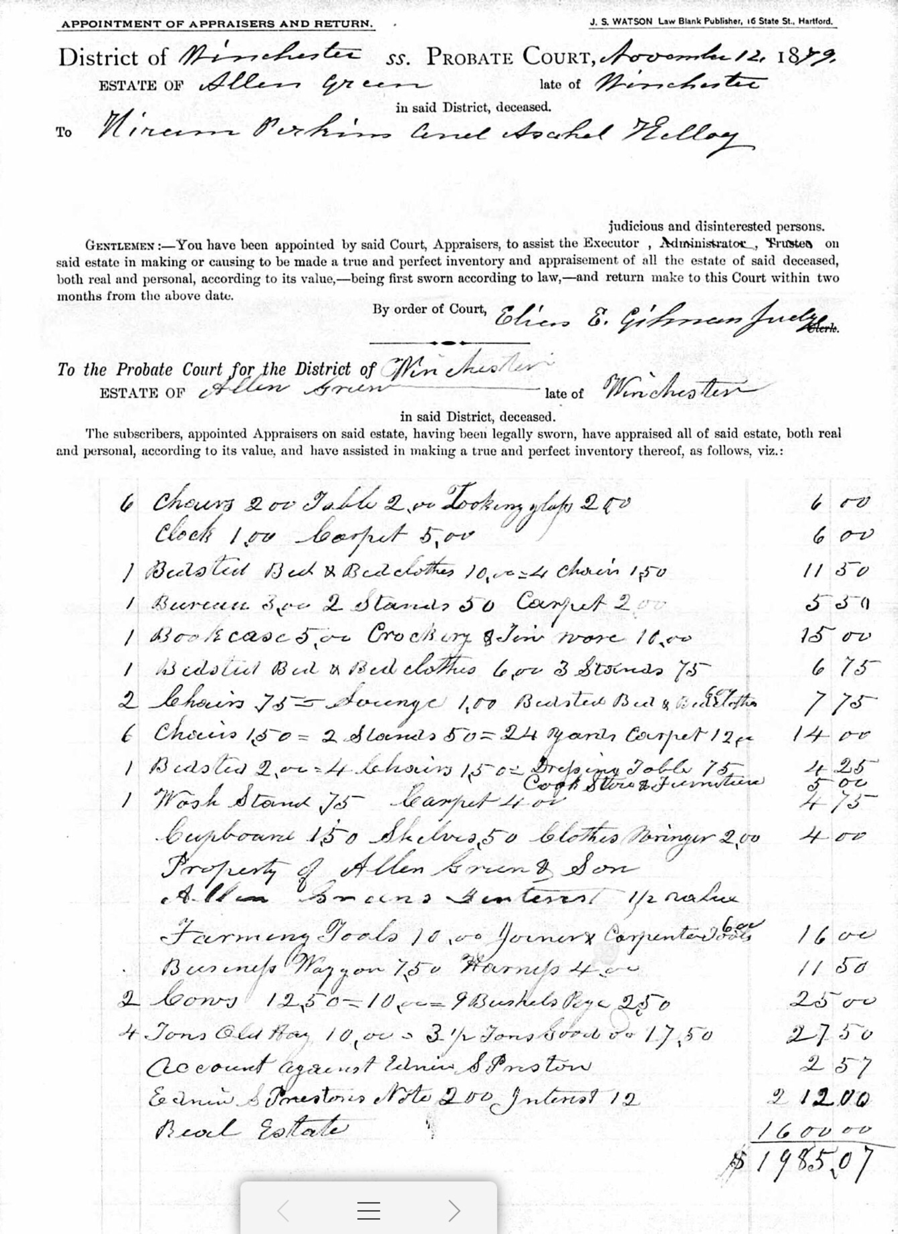 APPOINTMENT OF APPRAISERS AND RETURN.
J. S. WATSON Law Blank Publisher, 16 State St., Hartford.
District of Winchester ss. PROBATE COURT, November 12, 1879.
ESTATE OF Allen Green late of Winchester
in said District, deceased.
To Hiram Perkins and Asahel Kellog
judicious and disinterested persons.
GENTLEMEN:—You have been appointed by said Court, Appraisers, to assist the Executor , Administrator , Trustee on
said estate in making or causing to be made a true and perfect inventory and appraisement of all the estate of said deceased,
both real and personal, according to its value,—being first sworn according to law,—and return make to this Court within two
months from the above date.
By order of Court, Elias E. Gilman Judge Clerk.
To the Probate Court for the District of Winchester
ESTATE OF Allen Green late of Winchester
in said District, deceased.
The subscribers, appointed Appraisers on said estate, having been legally sworn, have appraised all of said estate, both real
and personal, according to its value, and have assisted in making a true and perfect inventory thereof, as follows, viz.:
6 Chairs 2 00 Table 2,00 Looking glass 2 00 6 00
Clock 1,00 Carpet 5,00 6 00
1 Bedsted Bed & Bedclothes 10,00=4 Chairs 1,50 11 50
1 Bureau 3,00 2 Stands 50 Carpet 2 00 5 50
1 Bookcase 5,00 Crockery & Tin ware 10,00 15 00
1 Bedsted Bed & Bed clothes 6,00 3 Stands 75 6 75
2 Chairs ,75= Lounge 1,00 Bedsted Bed & Bedclothes 7 75
6 Chairs 1,50= 2 Stands 50= 24 yards Carpet 12,00 14 00
1 Bedsted 2,00=4 Chairs 1,50= Dressing Table 75 4 25
Cook Stove & Furniture 5 00
1 Wash Stand 75 Carpet 4 00 4 75
Cupboard 1,50 Shelves ,50 Clothes Wringer 2,00 4 00
Property of Allen Green & Son
Allen Greens Interest 1/2 value
Farming Tools 10,00 Joiner & Carpenter Tools 6 00 16 00
Business Waggon 7,50 Harness 4 00 11 50
2 Cows 12,50=10,00= 9 Bushels Rye 2,50 25 00
4 Tons Old Hay 10,00= 3 1/2 Tons Good do 17,50 27 50
Account against Edwin S Preston 2 57
Edwin S Prestons Note 200 Interest 12 212 00
Real Estate 1600 00
$1985,07